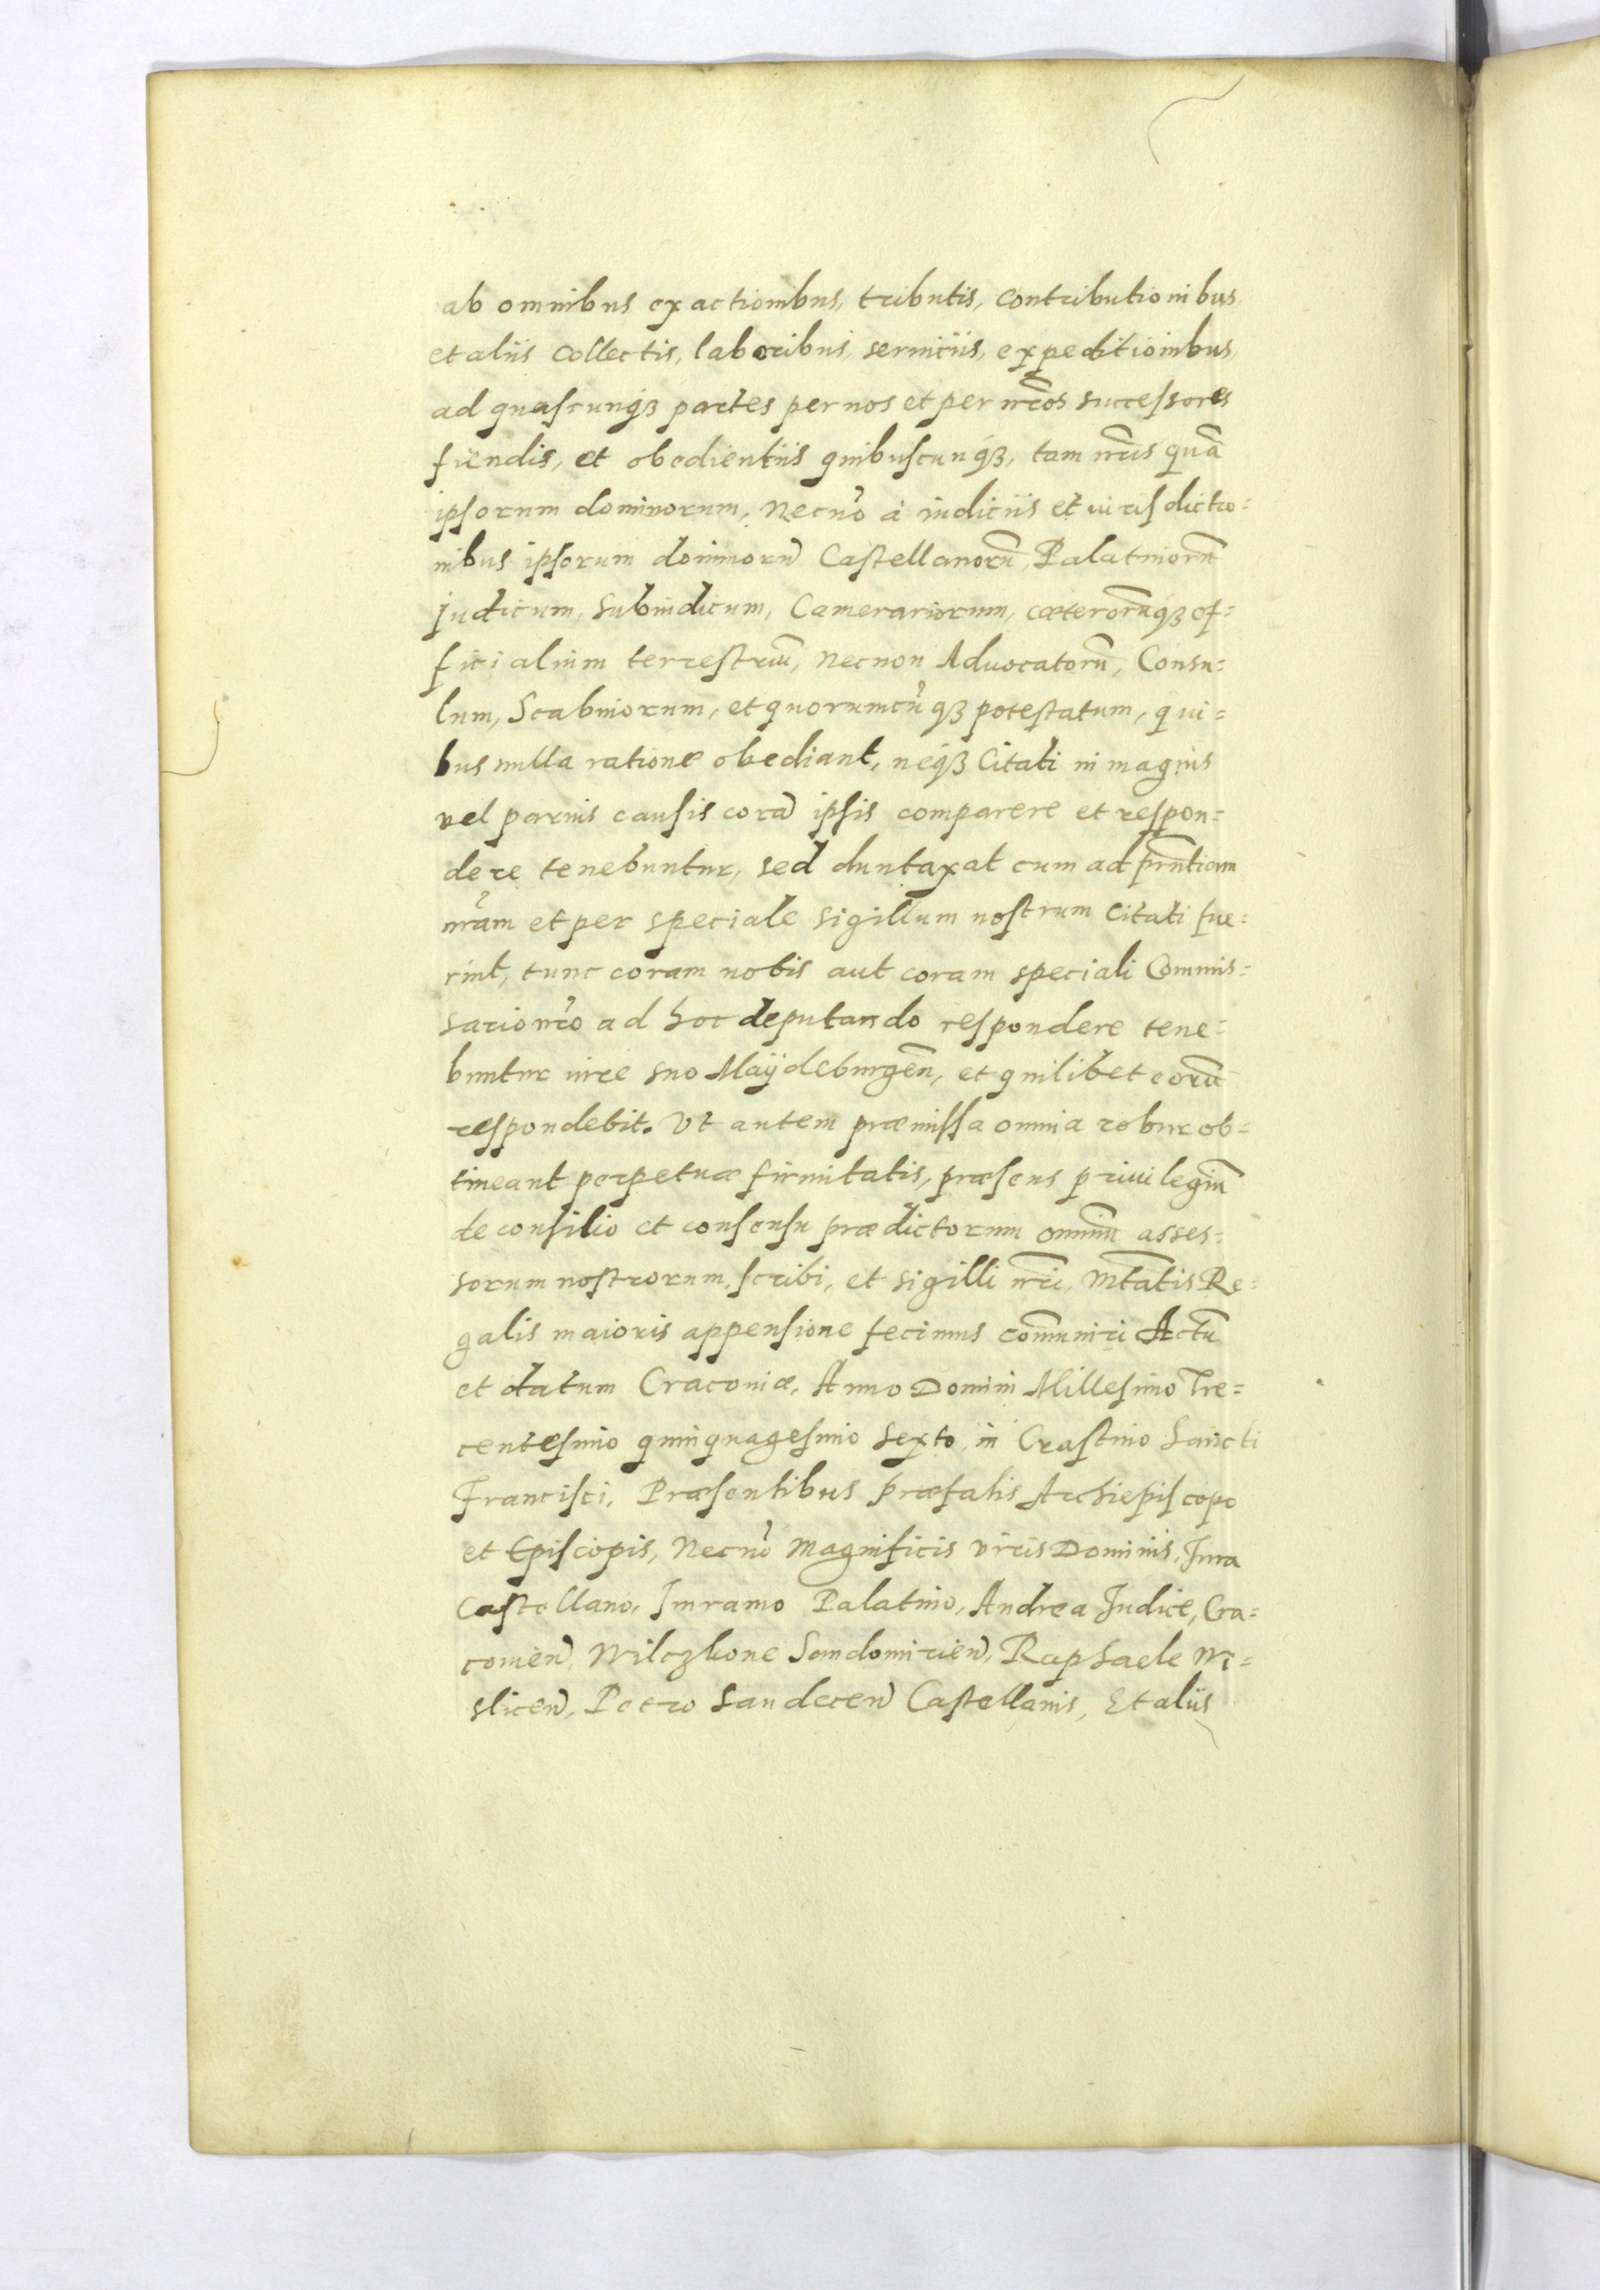 ab omnibus exactionibus, tributis, contributionibus
et aliis collectis, laboribus, seruiciis, expeditionibus
ad quascunqȝ partes per nos et per nr̃os successores
fiendis, et obedientiis quibuscunqȝ, tam nr̃is quã
ipsorum dominorum, Necnõ à iudiciis et iurisdictio=
nibus ipsorum dominorũ Castellanorũ, Palatinorũ
Judicum, Subiudicum, Camerariorum, cæterorũqȝ of=
ficialium terrestriũ, Necnon Aduocatorũ, Consu=
lum, Scabinorum, et quorumcũqȝ potestatum, qui=
bus nulla ratione obediant, neqȝ Citati in magnis
vel paruis causis corã ipsis comparere et respon=
dere tenebuntur, sed duntaxat cum ad prñtiam
nr̃am et per speciale sigillum nostrum Citati fue=
rint, tunc coram nobis aut coram speciali Commis=
sario nr̃o ad hoc deputando respondere tene=
buntur iure suo Maÿdeburgeñ, et quilibet eorũ
respondebit. Vt autem præmissa omnia robur ob=
tineant perpetuæ firmitatis, præsens priuilegiũ
de consilio et consensu prædictorum omniũ asses=
sorum nostrorum, scribi, et sigilli nr̃i, Mt̃atis Re=
galis maioris appensione fecimus com̃uniri Actũ
et datum Cracouiæ, Anno Domini Millesimo Tre=
centesimo quinquagesimo sexto, in Crastino Sancti
Francisci, Præsentibus præfatis Archiepiscopo
et Episcopis, Necnõ Magnificis viris Dominis, Jura
Castellano, Imramo Palatino, Andrea Judice, Cra=
couieñ, Wilczkone Sandomirieñ, Raphaele Wi=
sliceñ, Petro Sandeceñ Castellanis, Et aliis